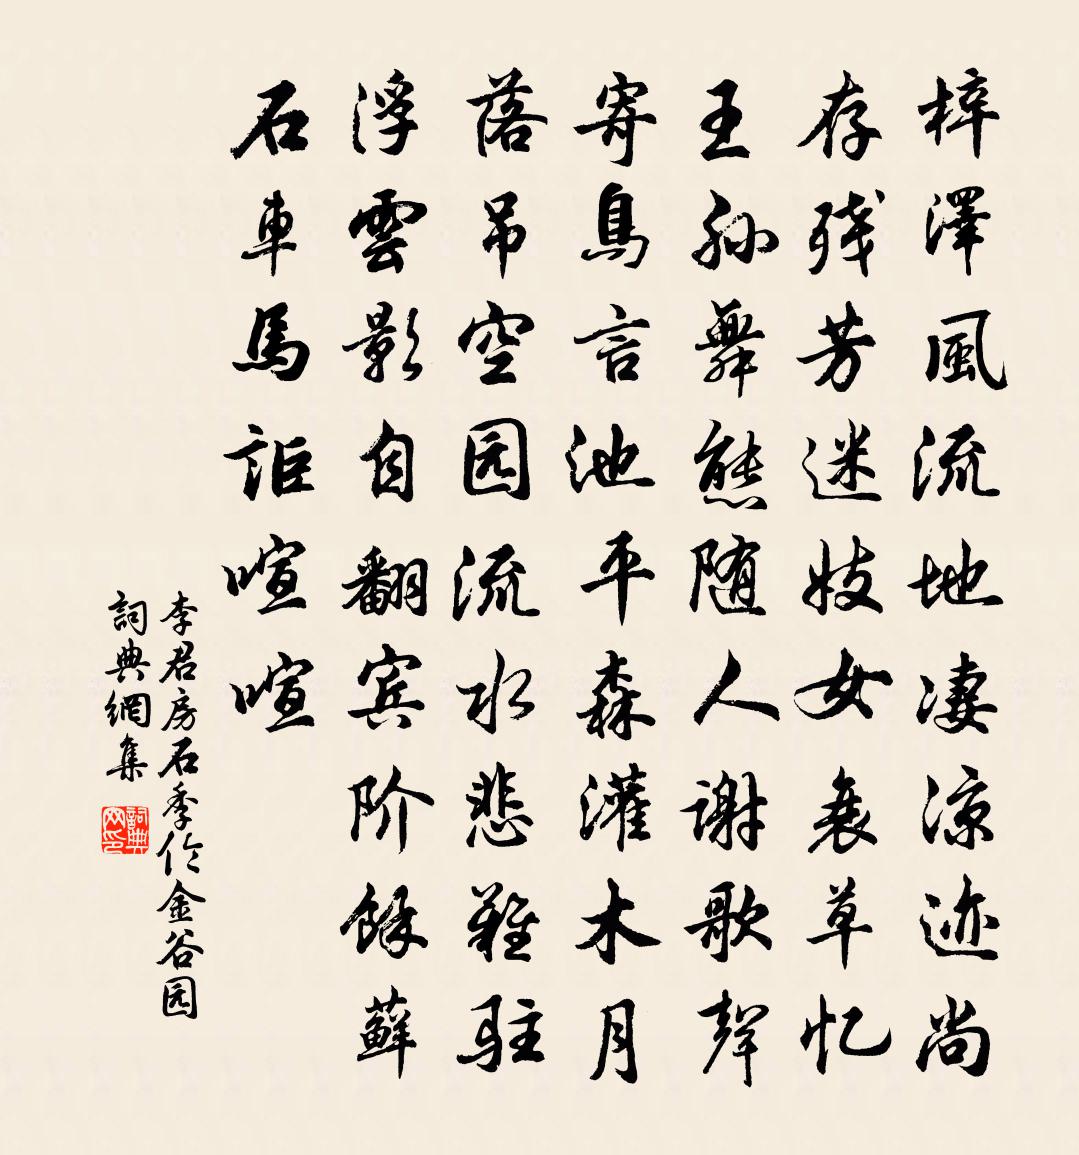 梓澤風流地凄涼迹尚
存残芳迷妓女衰草忆
王孙舞態随人谢歌聲
寄鳥言池平森灌木月
落吊空园流水悲難駐
浮雲影自翻宾阶餘蘚
石車馬詎喧喧
李君房石季伦金谷园
詞典網集
詞典网印